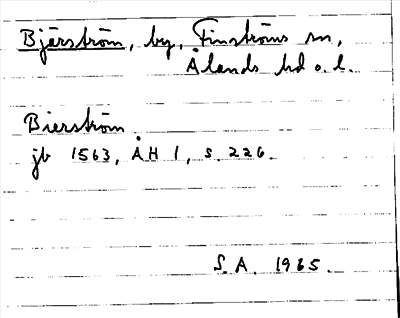 Bjärström, by, Finströms sn,
Ålands hd o. l.
Bierström
jb 1563, ÅH 1, s. 226.
S.A. 1965.